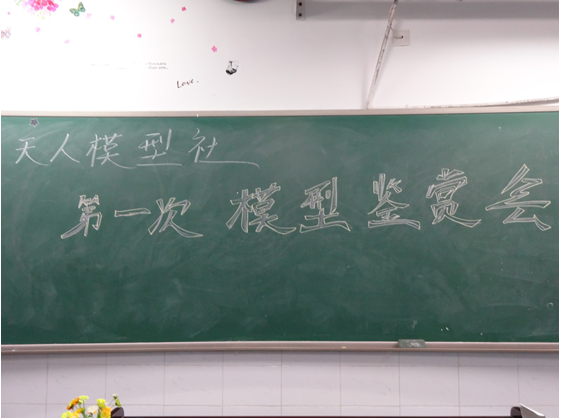 Love.
天人模型社
第一次 模型鉴赏会